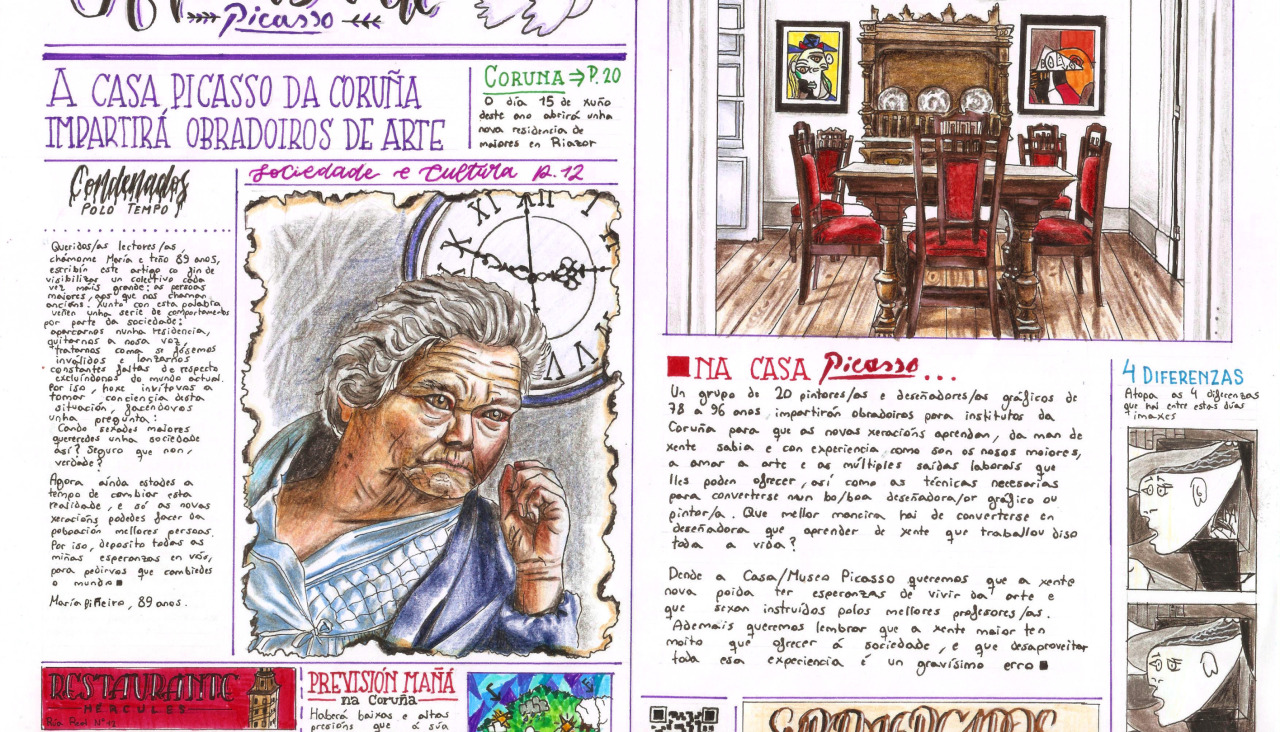 Picasso
A CASA PICASSO DA CORUÑA
IMPARTIRÁ OBRADOIROS DE ARTE
CORUNA ⇒ P. 20
O día 15 de xuño
deste ano abrirá unha
nova residencia de
maiores en Riazor
Condenados
POLO TEMPO
Queridos/as lectores/as,
chámome María e teño 89 anos,
escribín este artigo co fin de
visibilizar un colectivo cada
vez máis grande: as persoas
maiores, aos que nos chaman
anciáns. Xunto con esta palabra
veñen unha serie de comportamentos
por parte da sociedade:
aparcarnos nunha residencia,
quitarnos a nosa voz,
tratarnos como se fósemos
inválidos e lanzarnos
constantes faltas de respecto
excluíndonos do mundo actual.
Por iso, hoxe invítovos a
tomar conciencia desta
situación, facéndovos
unha pregunta:
Cando sexades maiores
queredes unha sociedade
así? Seguro que non,
verdade?
Agora aínda estades a
tempo de cambiar esta
realidade, e só as novas
xeracións podedes facer da
poboación mellores persoas.
Por iso, deposito todas as
miñas esperanzas en vós,
para pedirvos que cambiedes
o mundo
María Piñeiro, 89 anos.
Sociedade e Cultura P. 12
XI XII I
X
V
RESTAURANTE
HÉRCULES
Rúa Real Nº 12
PREVISIÓN MAÑÁ
na Coruña
Haberá baixas e altas
presións que á súa
NA CASA Picasso...
Un grupo de 20 pintores/as e deseñadores/as gráficos de
78 a 96 anos, impartirán obradoiros para institutos da
Coruña para que as novas xeracións aprendan, da man de
xente sabia e con experiencia como son os nosos maiores,
a amar a arte e as múltiples saídas laborais que
lles poden ofrecer, así como as técnicas necesarias
para converterse nun bo/boa deseñadora/or gráfico ou
pintor/a. Que mellor maneira hai de converterse en
deseñadora que aprender de xente que traballou diso
toda a vida?
Dende a Casa/Museo Picasso queremos que a xente
nova poida ter esperanzas de vivir da arte e
que sexan instruídos polos mellores profesores/as.
Ademais queremos lembrar que a xente maior ten
moito que ofrecer á sociedade, e que desaproveitar
toda esa experiencia é un gravísimo erro
4 DIFERENZAS
Atopa as 4 diferenzas
que hai entre estas dúas
imaxes